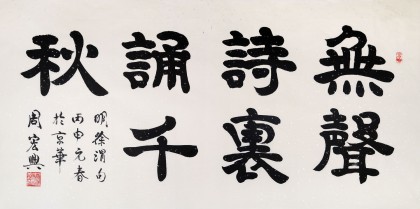 無聲
詩裏
誦千
秋
明徐渭句
丙申元春
於京華
周宏興